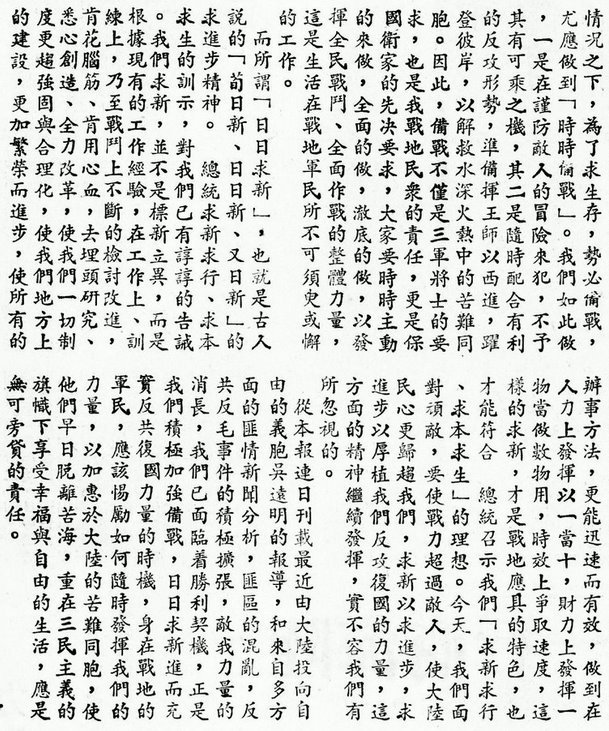 情況之下，為了求生存，勢必備戰，
尤應做到「時時備戰」。我們如此做
，一是在謹防敵人的冒險來犯，不予
其有可乘之機，其二是隨時配合有利
的反攻形勢，準備揮王師以西進，躍
登彼岸，以解救水深火熱中的苦難同
胞。因此，備戰不僅是三軍將士的要
求，也是我戰地民衆的責任，更是保
國衛家的先决要求，大家要時時主動
的來做，全面的做，澈底的做，以發
揮全民戰鬥、全面作戰的整體力量，
這是生活在戰地軍民所不可須臾或懈
的工作。
而所謂「日日求新」，也就是古人
說的「苟日新、日日新、又日新」的
求進步精神。　總統求新求行、求本
求生的訓示，對我們已有諄諄的告誡
。我們求新，並不是標新立異，而是
根據現有的工作經驗，在工作上、訓
練上，乃至戰鬥上不斷的檢討改進，
肯花腦筋、肯用心血，去埋頭研究、
悉心創造、全力改革，使我們一切制
度更超強固與合理化，使我們地方上
的建設，更加繁榮而進步，使所有的
辦事方法，更能迅速而有效，做到在
人力上發揮以一當十，財力上發揮一
物當做數物用，時效上爭取速度，這
樣的求新，才是戰地應具的特色，也
才能符合　總統召示我們「求新求行
、求本求生」的理想。今天，我們面
對頑敵，要使戰力超過敵人，使大陸
民心更歸趨我們，求新以求進步，求
進步以厚植我們反攻復國的力量，這
方面的精神繼續發揮，實不容我們有
所忽視的。
從本報連日刊載最近由大陸投向自
由的義胞吳遠明的報導，和來自多方
面的匪情新聞分析，匪區的混亂，反
共反毛事件的積極擴張，敵我力量的
消長，我們已面臨着勝利契機，正是
我們積極加強備戰，日日求新進而充
實反共復國力量的時機，身在戰地的
軍民，應該惕勵如何隨時發揮我們的
力量，以加惠於大陸的苦難同胞，使
他們早日脫離苦海，重在三民主義的
旗幟下享受幸福與自由的生活，應是
無可旁貸的責任。